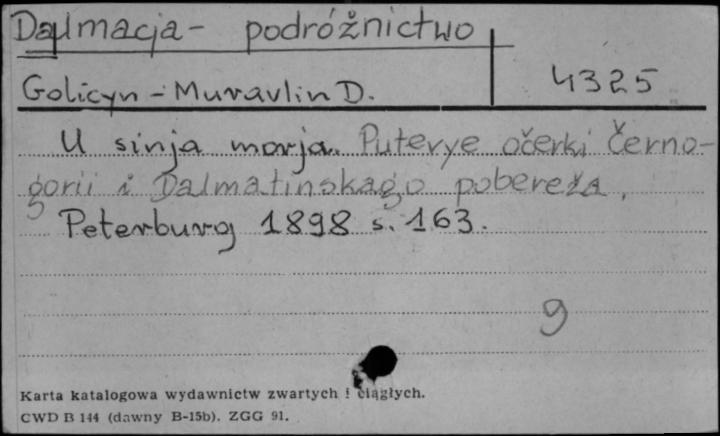 Dalmacja - podróžnictwo
Golicyn - Muravlin D. 4325
U sinja morja. Puterye očerki Černo-
gorii i Dalmatinskago pobereža.
Peterburg 1898 s. 163.
9
Karta katalogowa wydawnictw zwartych i ciągłych.
CWD B 144 (dawny B-15b). ZGG 91.